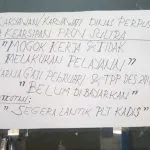 KARYAWAN/KARYAWATI DINAS PERPUS
KEARSIPAN PROV SULTRA
"MOGOK KERJA & TIDAK
MELAKUKAN PELAYANAN"
KARENA GAJI PEBRUARI & TPP DES 20
"BELUM DIBAYARKAN"
"SEGERA LANTIK PLT KADIS"